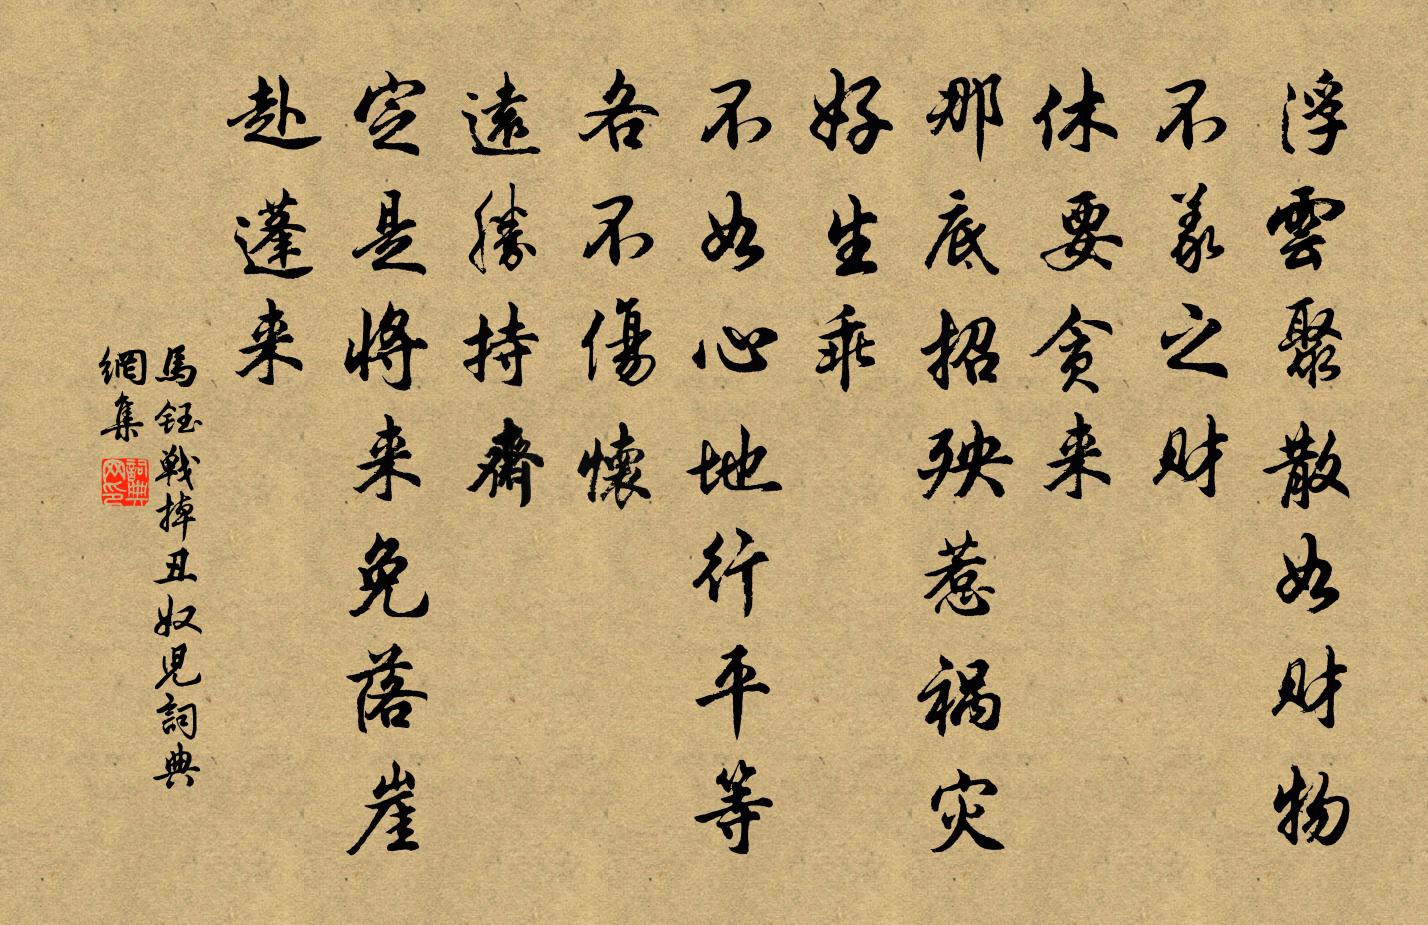 浮雲聚散如财物
不義之财
休要贪来
那底招殃惹祸灾
好生乖
不如心地行平等
各不傷懷
遠勝持齋
定是将来免落崖
赴蓬来
馬鈺戰掉丑奴兒詞典
網集
詞典
网印